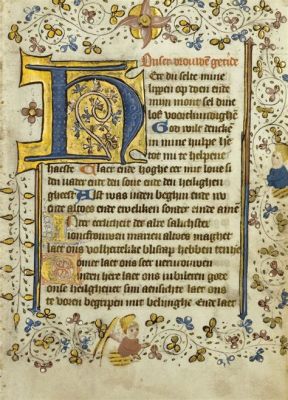 Onser vrouwen getide
Here du selte mine
lippen op doen ende
mijn mont sel dine
lof voortcundighen
God wilt dencken
in mine hulpe he
tot mi te helpene
haeste ende hoghe eer mit loue si
den vader ende den sone ende den heilighen
gheest Alst was inden beghin ende nv
ende altoes ende eweliken sonder einde amen
Ter eerlicheit der alre salichster
ioncfrouwen marien altoes maghet
laet ons volherdelike blisap hebben
Comet laet ons seer vervrouwen
inden here laet ons iubileren gode
onse heilghever sijn aensichte laet ons
te voren begripen met belyinghe Ende laet